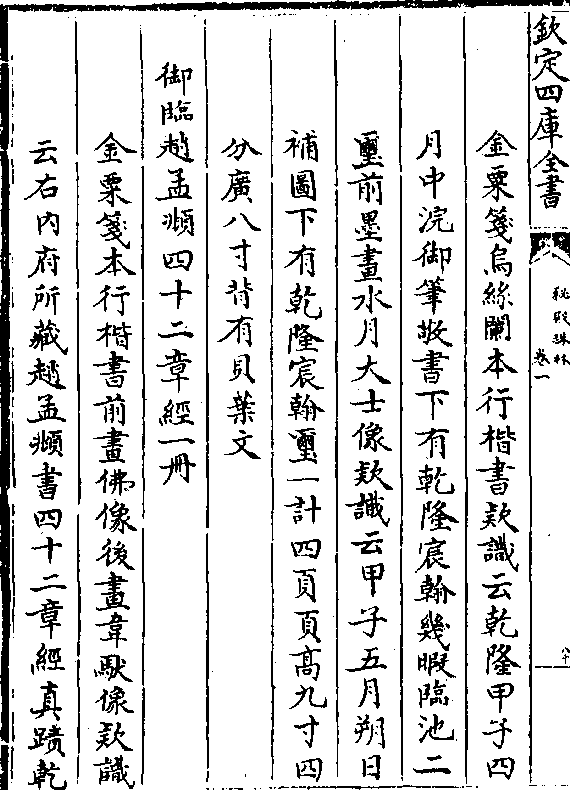 欽定四庫全書
秘殿珠林
卷一
金粟箋烏絲闌本行楷書欵識云乾隆甲子四
月中浣御筆敬書下有乾隆宸翰幾暇臨池二
璽前墨畫水月大士像欵識云甲子五月朔日
補圖下有乾隆宸翰璽一計四頁頁高九寸四
分廣八寸背有貝葉文
御臨趙孟頫四十二章經一冊
金粟箋本行楷書前畫佛像後畫韋馱像欵識
云右內府所藏趙孟頫書四十二章經真蹟乾